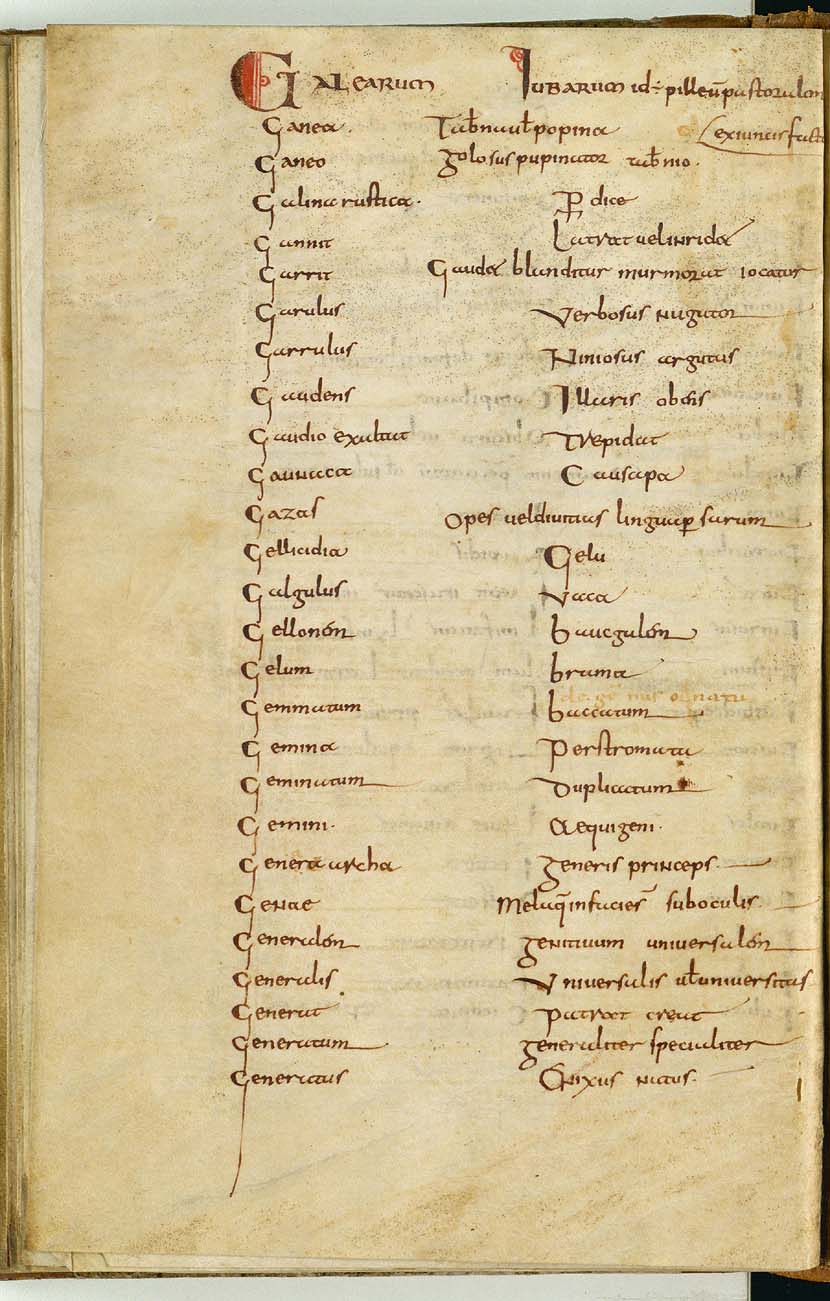 Galearum Iubarum id÷ pilleū pastoralem
Ganea. Tabna uel popina Lex iuncis facta
Ganeo golosus pupinator tabnio.
Galina rustica. Pdice
Gannit Latrat uel inridet
Garrit Gaudet blanditur murmorat iocatur
Garulus Verbosus nugator
Garrulus Niniosus argutus
Gaudens Illaris obans
Gaudio exultat Trepidat
Gaunaca Causapa
Gazas Opes uel diuitias lingua psarum
Gellicidia Gelu
Galgulus Vaca
Gellonem baucgalem
Gelum bruma
Gemmatum baccatum
Gemina Perstromata
Geminatum Duplicatum
Gemini. Aequigeni.
Genera archa generis princeps.
Genae Melaq in facies sub oculis.
Generalem genitiuum uniuersalem
Generalis Vniuersalis ul uniuersitas
Generat patrat creat
Generatum generaliter specialiter
Generatus Enixus natus.